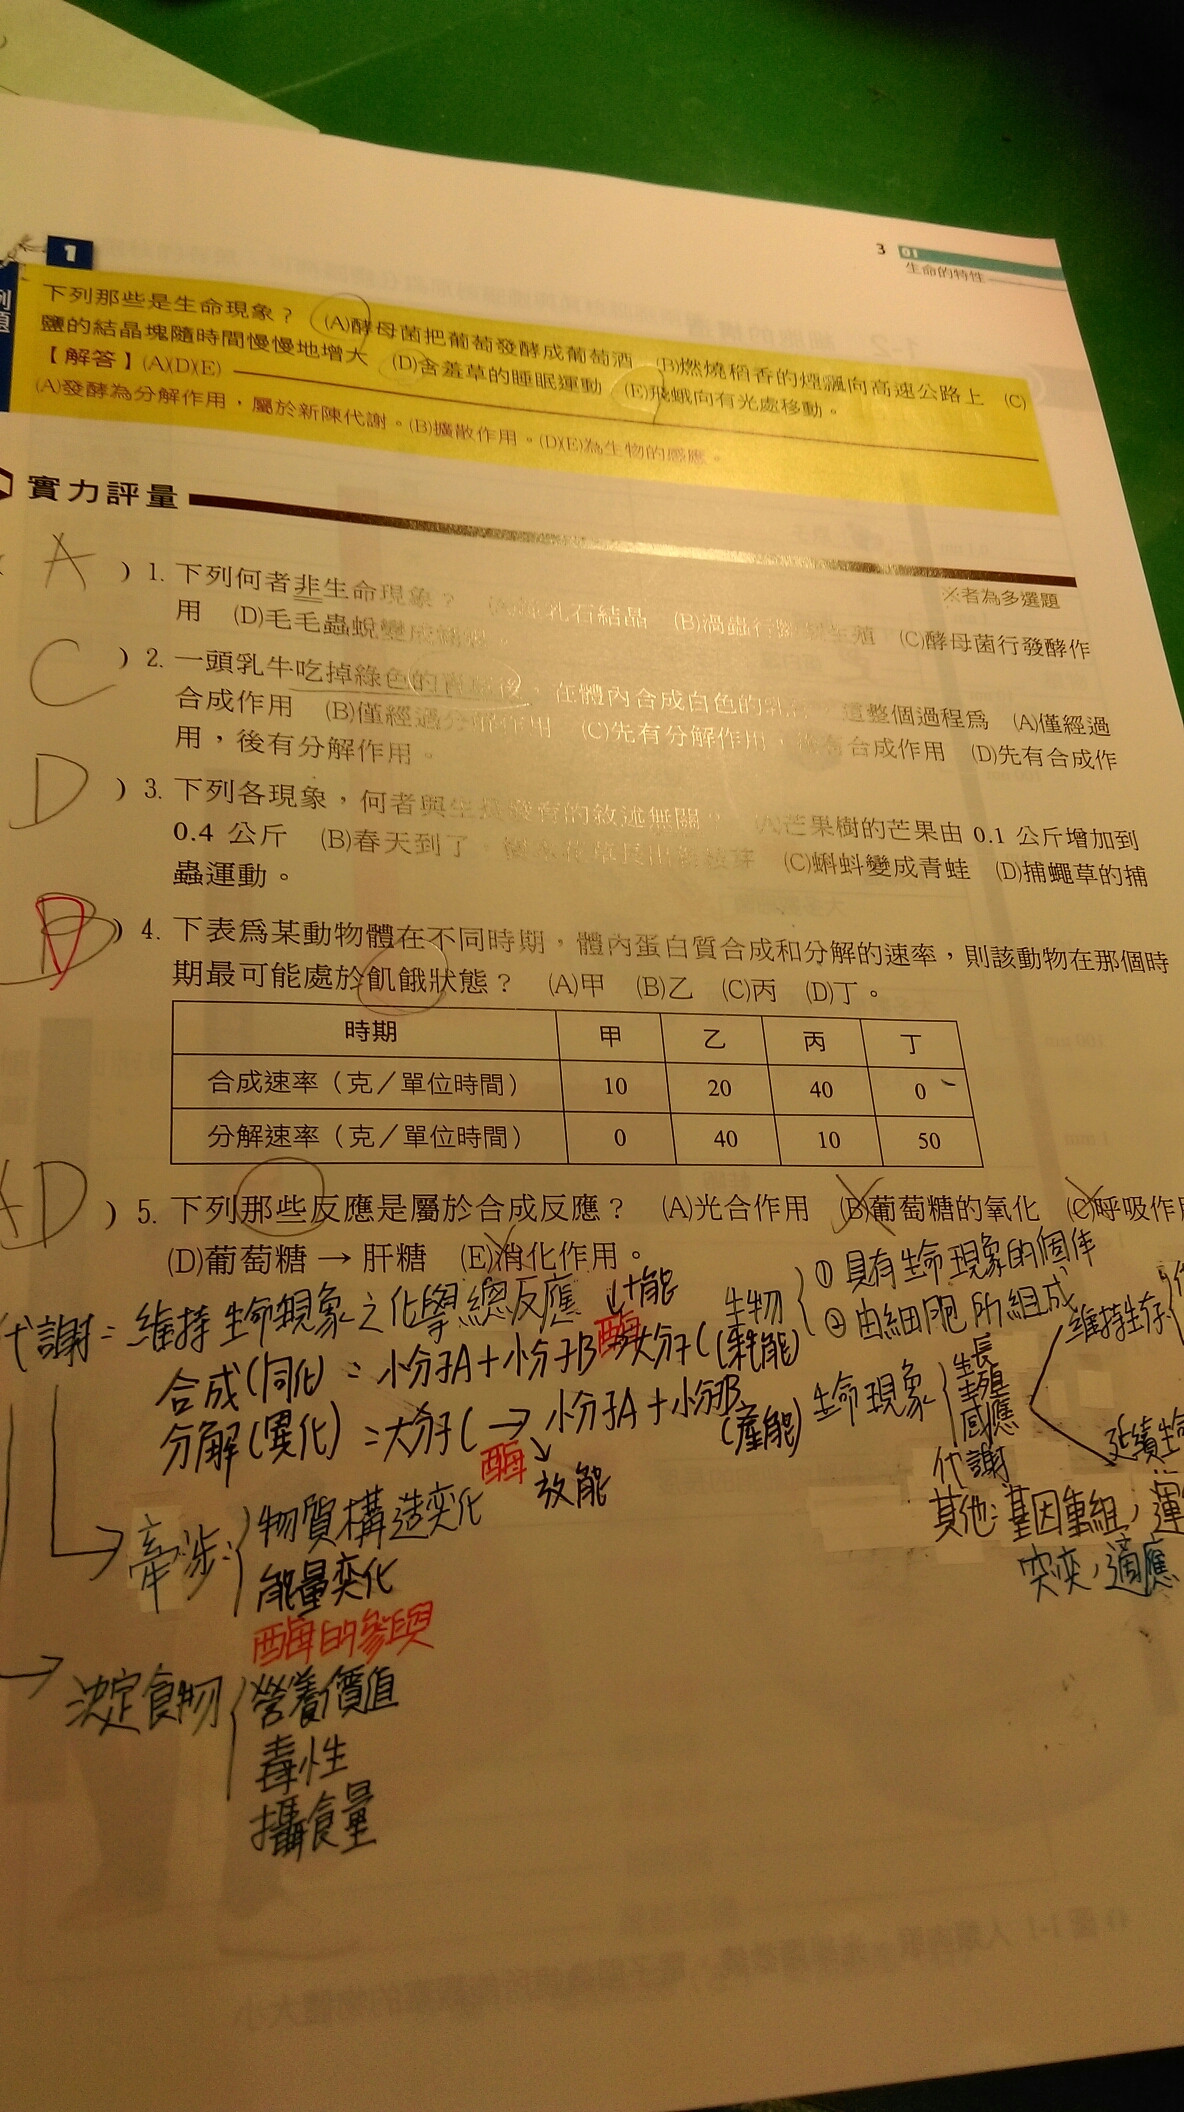 3 01
生命的特性
1
例題
下列那些是生命現象？ (A)酵母菌把葡萄發酵成葡萄酒 (B)燃燒稻香的煙飄向高速公路上 (C)
鹽的結晶塊隨時間慢慢地增大 (D)含羞草的睡眠運動 (E)飛蛾向有光處移動。
【解答】(A)(D)(E)
(A)發酵為分解作用，屬於新陳代謝。(B)擴散作用。(D)(E)為生物的感應。
實力評量
※者為多選題
A ) 1. 下列何者非生命現象？ (A)鐘乳石結晶 (B)渦蟲行 生殖 (C)酵母菌行發酵作
用 (D)毛毛蟲蛻變成
C ) 2. 一頭乳牛吃掉綠色的 後，在體內合成白色的 ，這整個過程為 (A)僅經過
合成作用 (B)僅經過分解作用 (C)先有分解作用，後有合成作用 (D)先有合成作
用，後有分解作用。
D ) 3. 下列各現象，何者與生長發育的敘述無關？ (A)芒果樹的芒果由 0.1 公斤增加到
0.4 公斤 (B)春天到了， 長出 芽 (C)蝌蚪變成青蛙 (D)捕蠅草的捕
蟲運動。
D ) 4. 下表為某動物體在不同時期，體內蛋白質合成和分解的速率，則該動物在那個時
期最可能處於飢餓狀態？ (A)甲 (B)乙 (C)丙 (D)丁。
時期 甲 乙 丙 丁
合成速率（克／單位時間） 10 20 40 0
分解速率（克／單位時間） 0 40 10 50
AD ) 5. 下列那些反應是屬於合成反應？ (A)光合作用 (B)葡萄糖的氧化 (C)呼吸作用
(D)葡萄糖 → 肝糖 (E)消化作用。
代謝 = 維持生命現象之化學總反應
合成(同化) = 小分子A + 小分子B 酶 大分子C (耗能)
分解(異化) = 大分子C → 小分子A + 小分子B (產能)
酶 放能
生物 ① 具有生命現象的個体
② 由細胞所組成
生命現象 生長
生殖
感應
代謝
其他：基因重組，運
突变，適應
維持生存
延續生命
牽涉： 物質構造变化
能量变化
酶的參與
決定食物 營養價值
毒性
攝食量